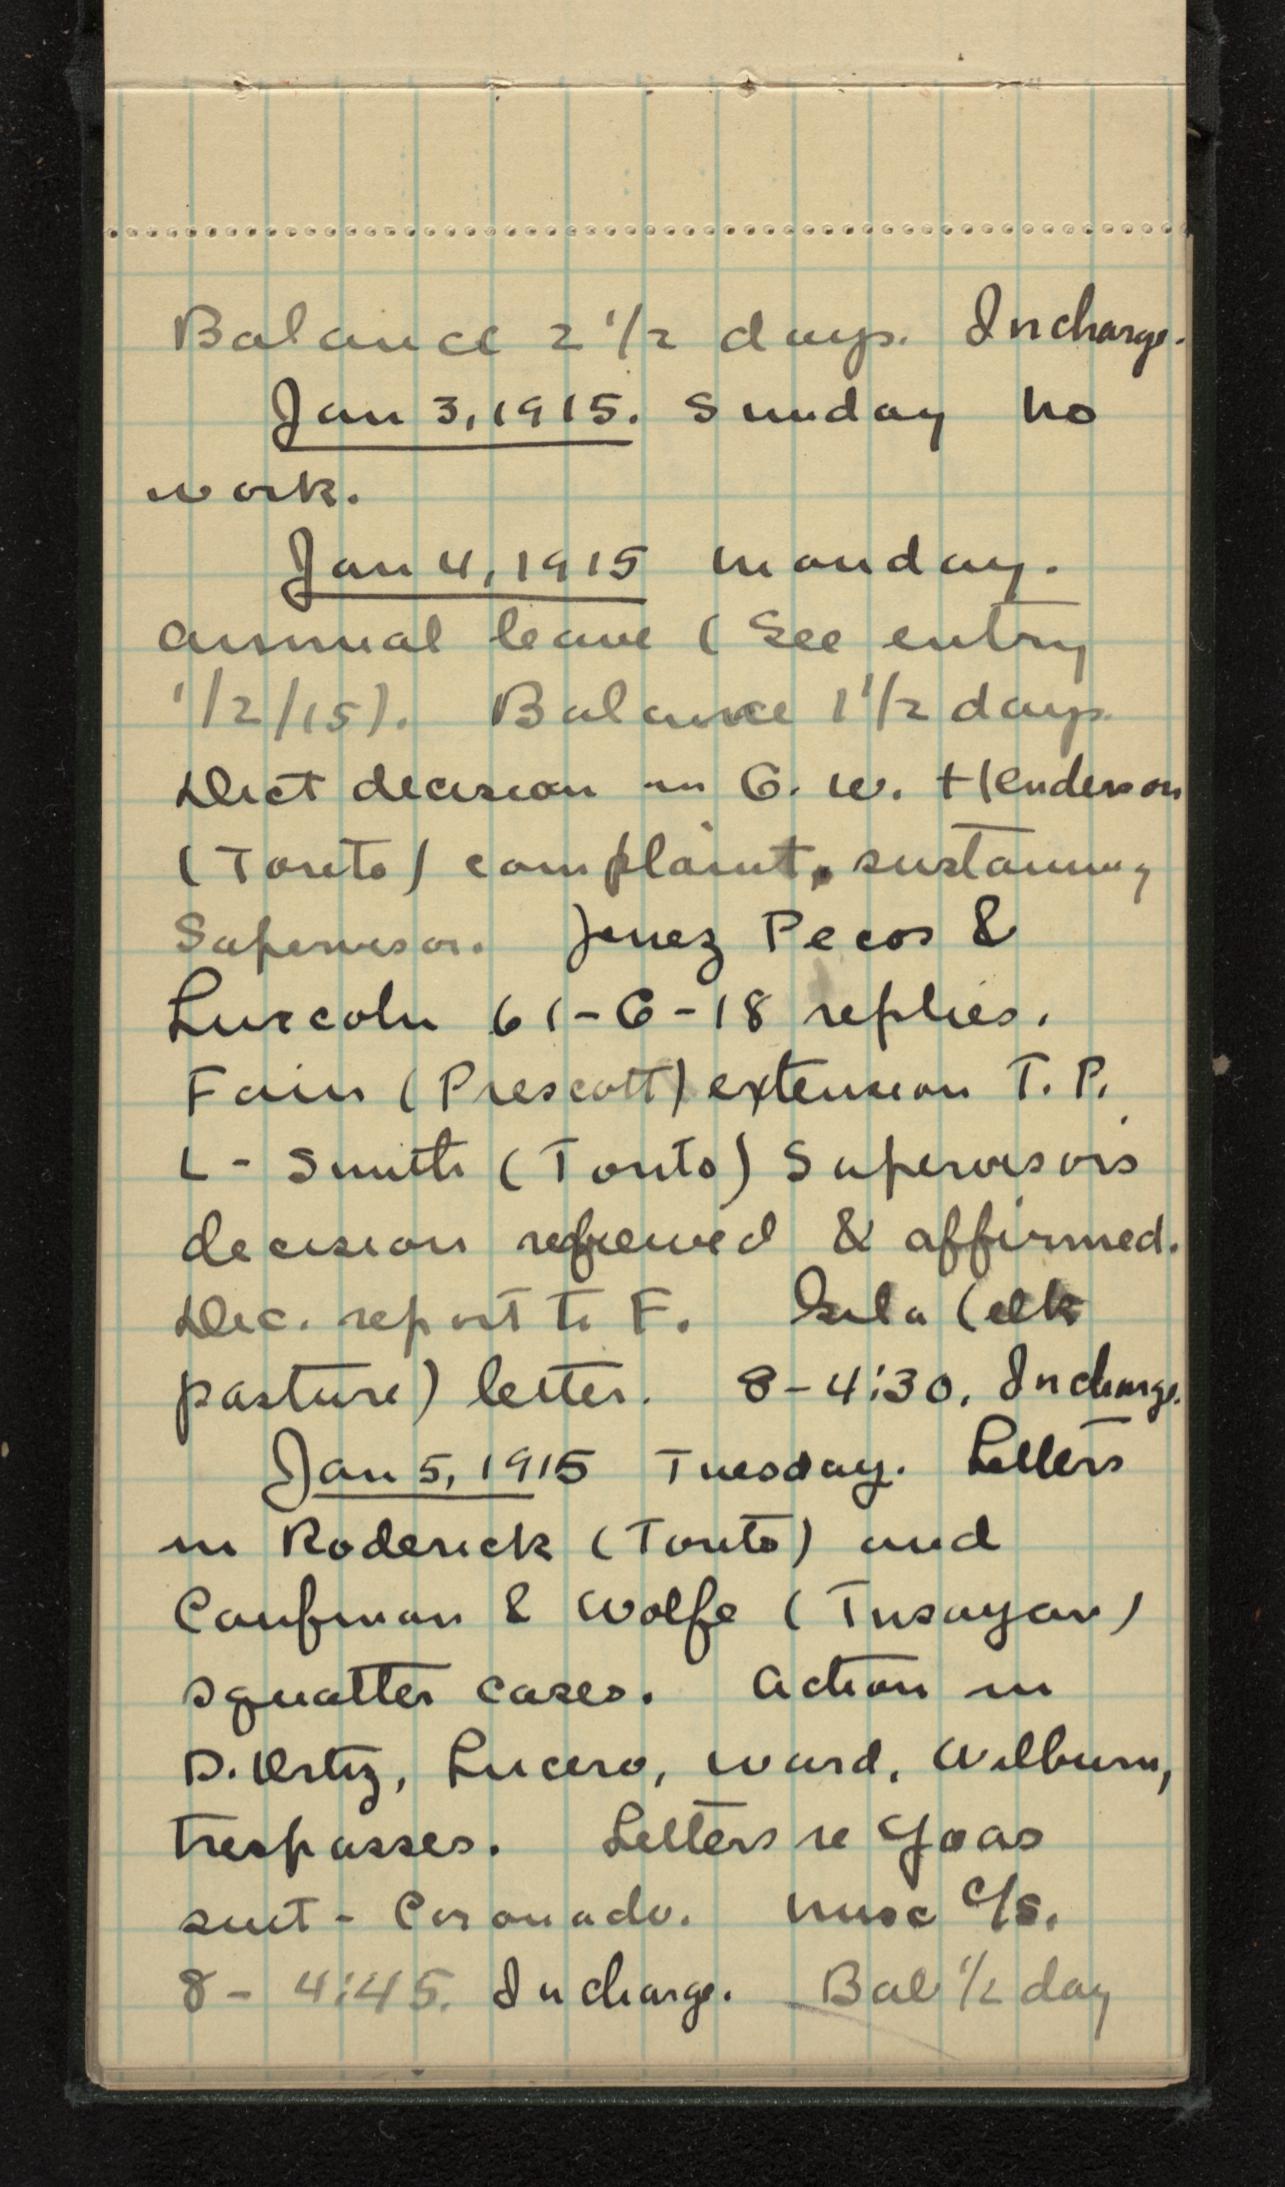 Balance 2 1/2 days. In charge.
Jan 3, 1915. Sunday No
work.
Jan 4, 1915 Monday.
Annual leave (See entry
1/2/15). Balance 1 1/2 days
Dict decision in G. W. Henderson
(Tonto) complaint, sustaining
Supervisor. Jemez Pecos &
Lincoln 61-G-18 replies.
Fain (Prescott) extension T. P.
L - Smith (Tonto) Supervisors
decision reviewed & affirmed.
Dec. report to F. Gila (elk
pasture) letter. 8-4:30, In charge.
Jan 5, 1915 Tuesday. Letters
in Roderick (Tonto) and
Caufman & Wolfe (Tusayan)
squatter cases. Action in
D. Ortiz, Lucero, Ward, Wilburn,
trespasses. Letters re
suit - Coronado. Misc C/s.
8- 4:45. In charge. Bal 1/2 day